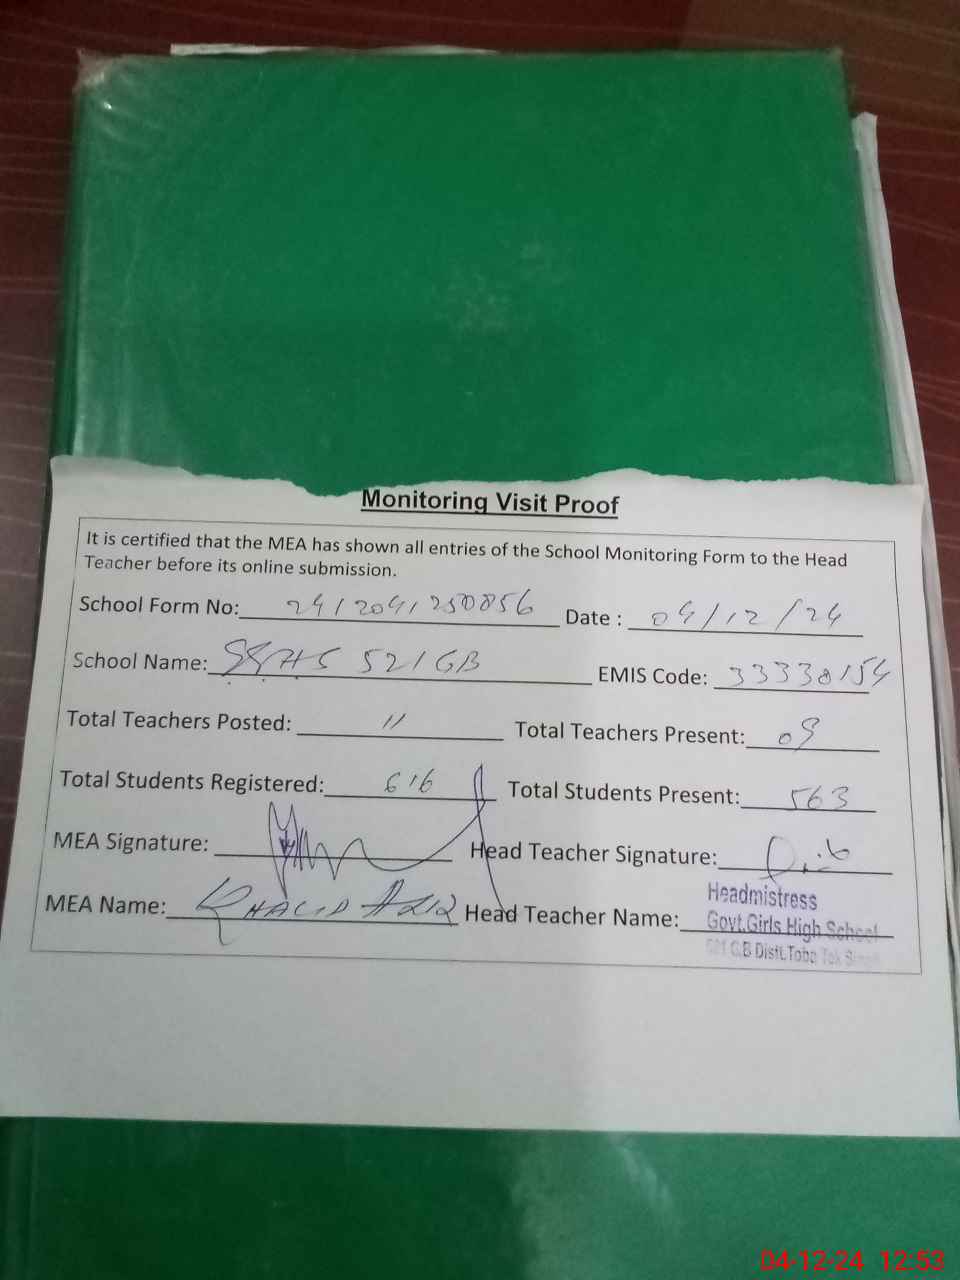 Monitoring Visit Proof
It is certified that the MEA has shown all entries of the School Monitoring Form to the Head
Teacher before its online submission.
School Form No: 2412041250856 Date : 04/12/24
School Name: GGHS 521GB EMIS Code: 33330154
Total Teachers Posted: 11 Total Teachers Present: 09
Total Students Registered: 616 Total Students Present: 563
MEA Signature: Head Teacher Signature:
MEA Name: KHALID AZIZ Head Teacher Name:
Headmistress
Govt.Girls High School
521 G.B Distt.Toba Tek Singh
04-12-24 12:53